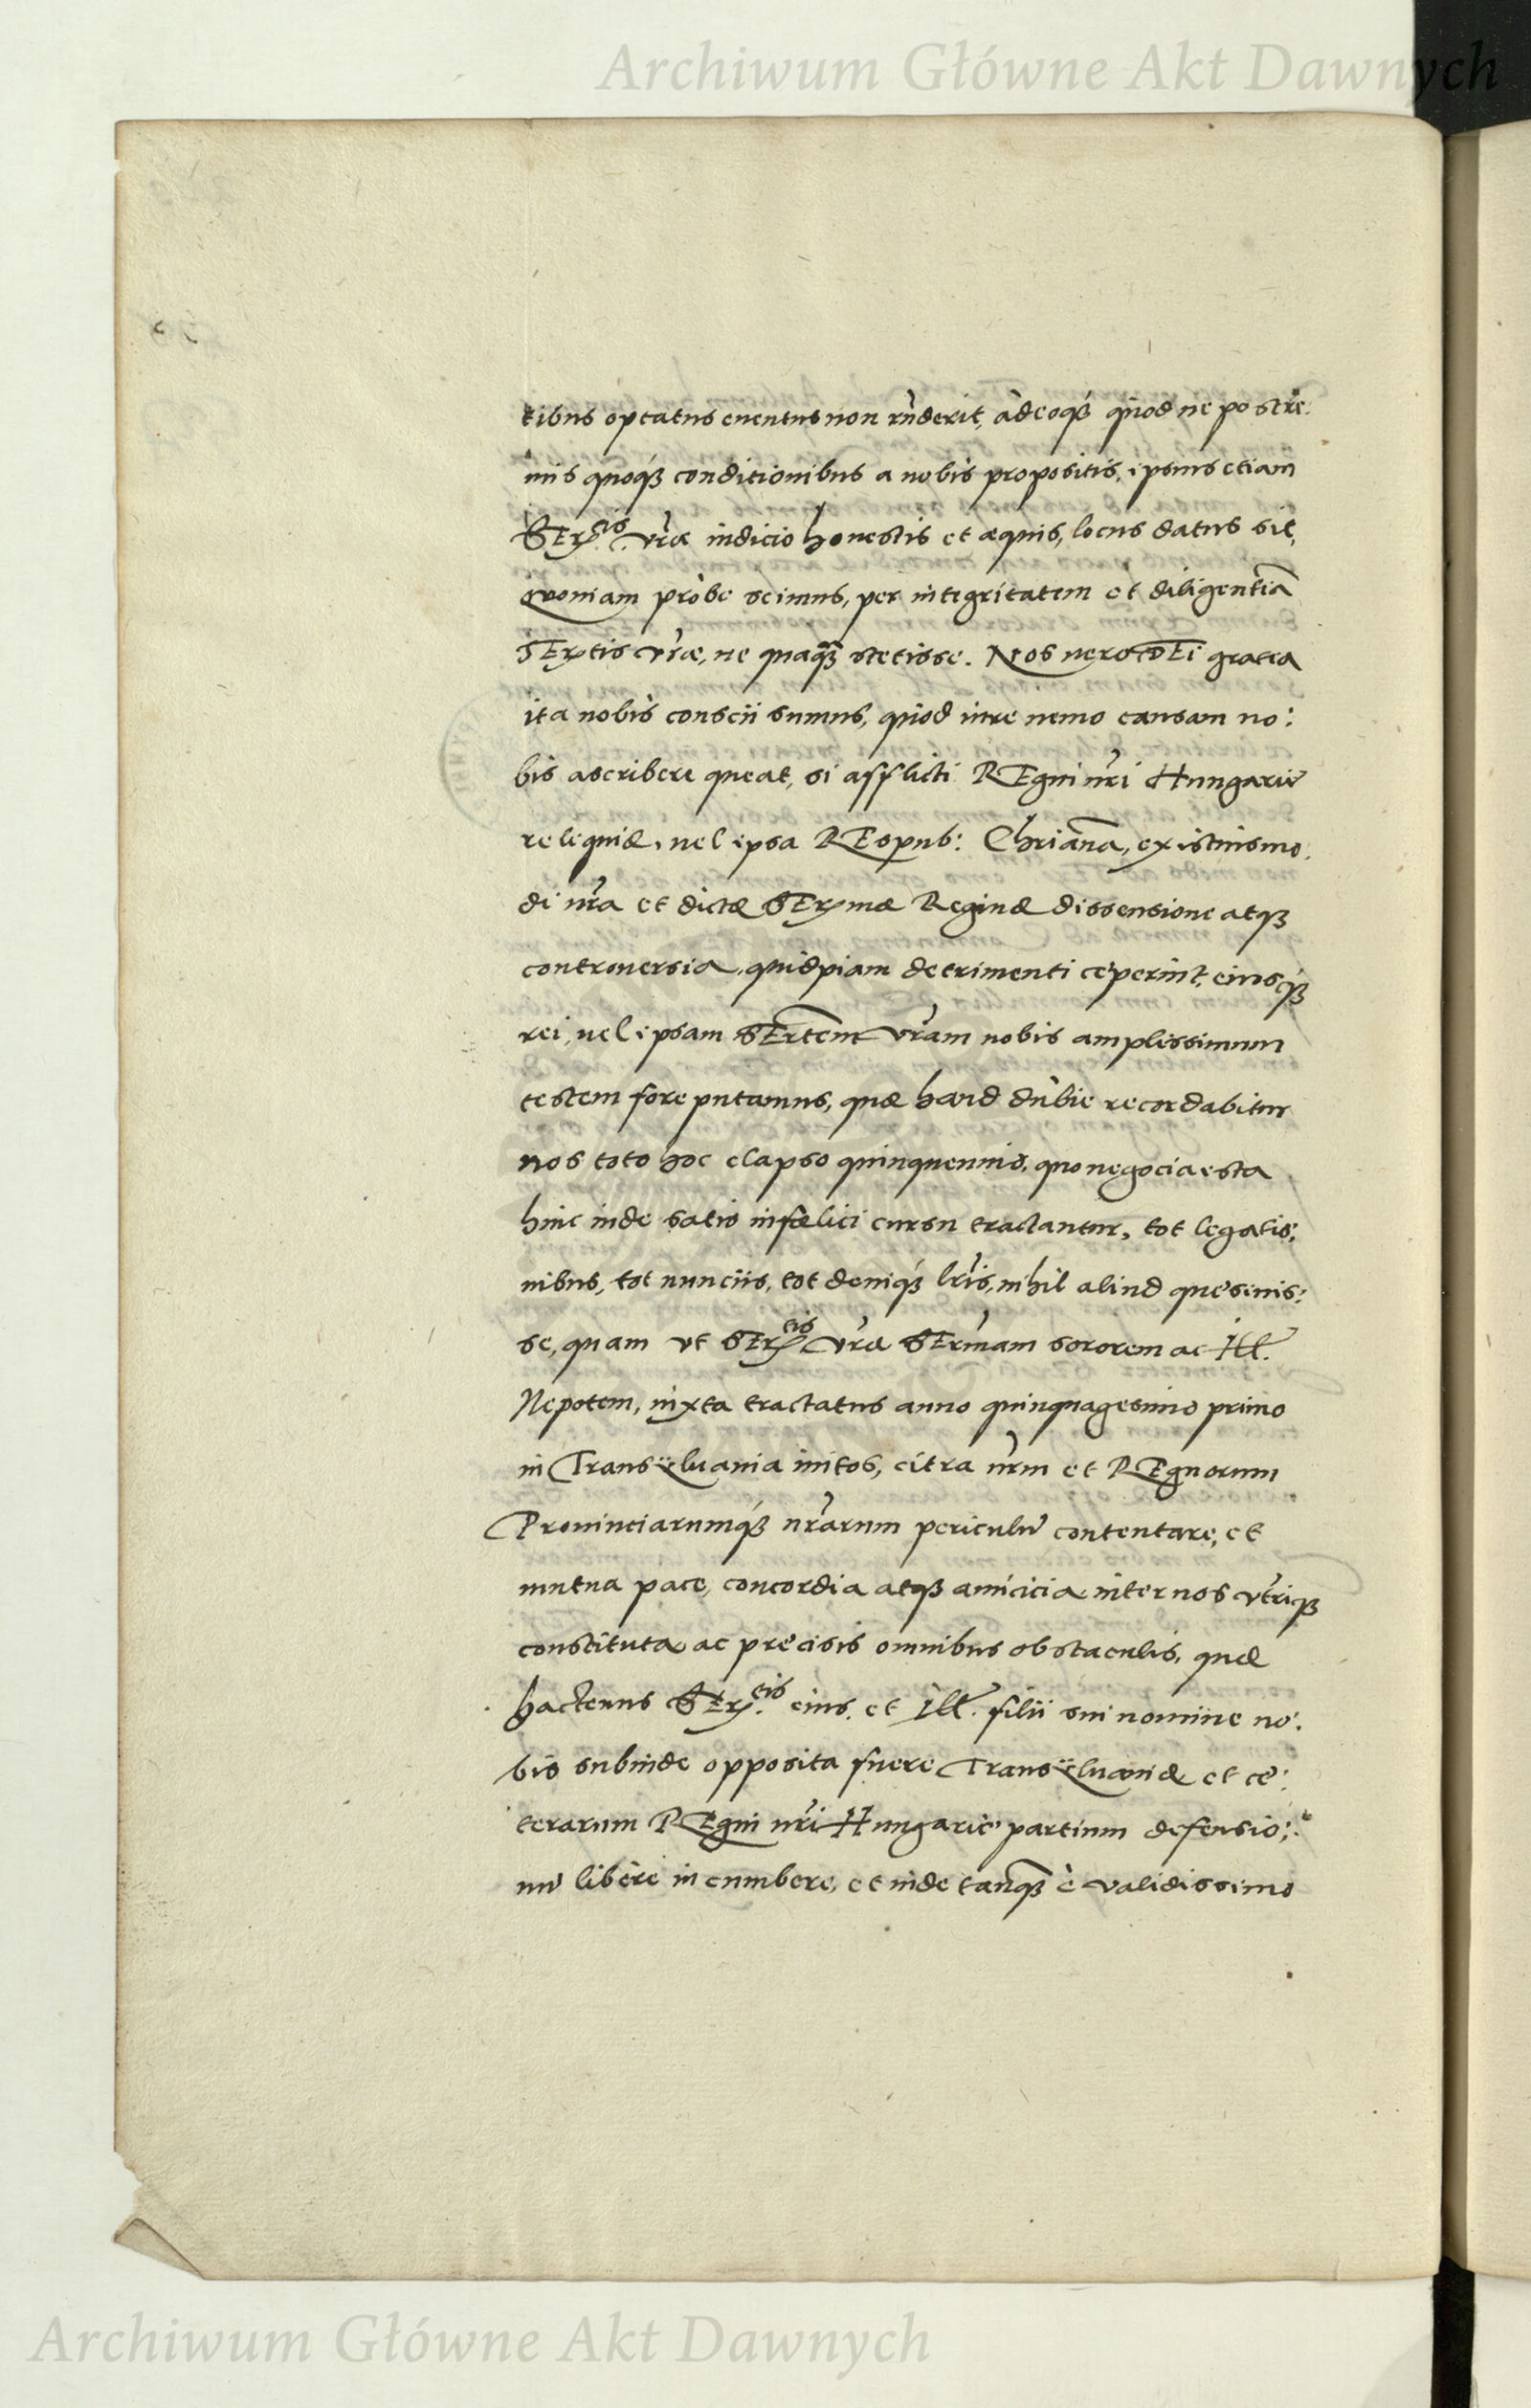 Archiwum Główne Akt Dawnych
tibus optatus euentus non rn̄derit, adeoq́ꝫ quod ne postre:
mis quoq́ꝫ conditionibus a nobis propositis, ipsius etiam
SEr.tis vr̄æ iudicio honestis et æquis, locus datus sit,
Quoniam probe scimus, per integritatem et diligentiā
SErtis vr̄æ, ne quaq̄ꝫ stetisse. Nos uero DEi gratia
ita nobis conscii sumus, quod iure nemo causam no:
bis ascribere queat, si afflicti REgni nr̄i Hungarie
reliquiæ, uel ipsa REspub: Chriāna, ex istiusmo:
di nr̄a et dictæ SErmæ Reginæ dissensione atqꝫ
controuersia, quidpiam detrimenti ceperint, eiusq́ꝫ
rei, uel ipsam SErtem vr̄am nobis amplissimum
testem fore putamus, quæ haud dubie recordabitur
nos toto hoc elapso quinquennio, quo negocia ista
hinc inde satis infœlici cursu tractantur, tot legatio:
nibus, tot nunciis, tot deniq́ꝫ lr̄is, nihil aliud quesiuis:
se, quam vt SEr.tis vr̄æ SErmam sororem ac Ill.
Nepotem, iuxta tractatus anno quinquagesimo primo
in Transÿluania initos, citra nr̄m et REgnorum
Prouinciarumq́ꝫ nr̄arum periculū contentare, et
mutua pace, concordia atqꝫ amicicia inter nos vtrīqꝫ
constituta ac precisis omnibus obstaculis, quæ
hactenus SEr.tis eius. et Ill. filii sui nomine no:
bis subinde opposita fuere Transÿluaniæ et ce:
terarum REgni nr̄i Hungarie partium defensio:
ni libere incumbere, et inde tanq̄ꝫ è validissimo
Archiwum Główne Akt Dawnych